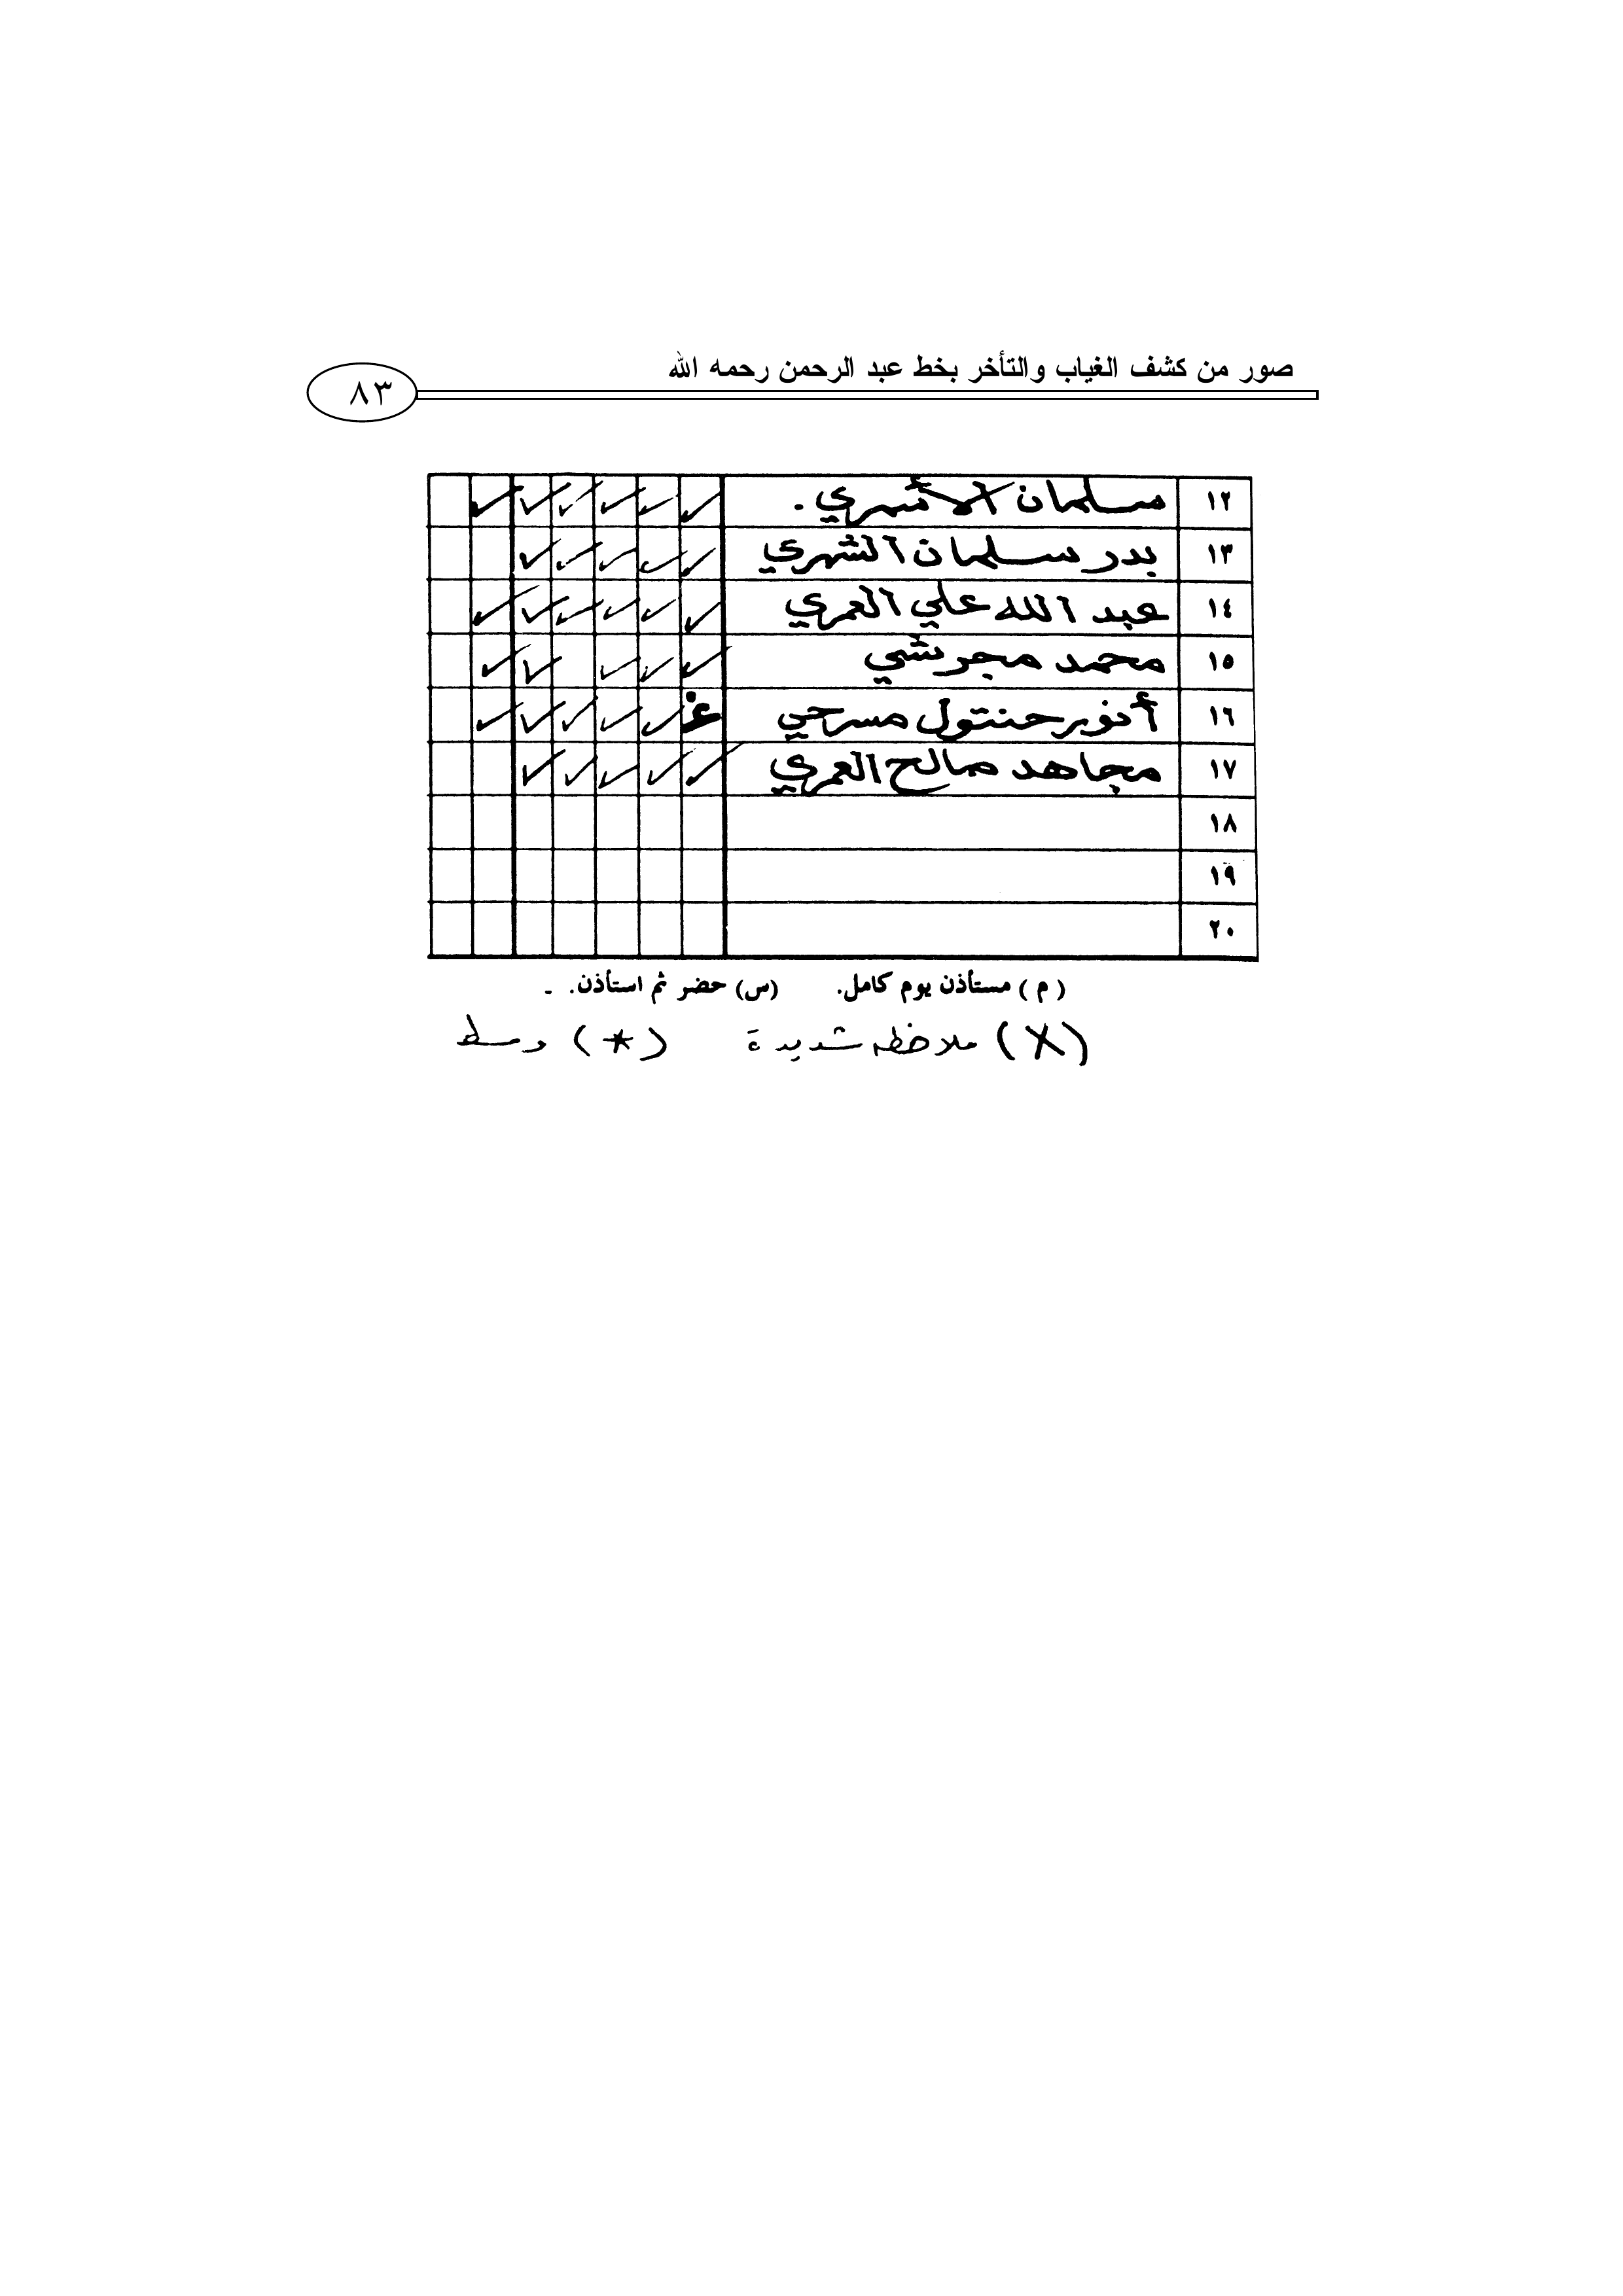 صور من كشف الغياب والتأخر بخط عبد الرحمن رحمه الله
٨٣
١٢ سلمان الأسمري. ✓ ✓ ✓ ✓ ✓ ✓
١٣ بدر سلمان الشهري ✓ ✓ ✓ ✓ ✓
١٤ عبد الله علي العمري ✓ ✓ ✓ ✓ ✓ ✓
١٥ محمد مجرشي ✓ ✓ ✓ ✓ ✓
١٦ أنور حنتول مسرحي غ ✓ ✓ ✓ ✓ ✓
١٧ مجاهد صالح العمري ✓ ✓ ✓ ✓ ✓
١٨
١٩
٢٠
( م ) مستأذن يوم كامل. (س) حضر ثم استأذن. -
(X) ملاحظه شديدة (*) وسط